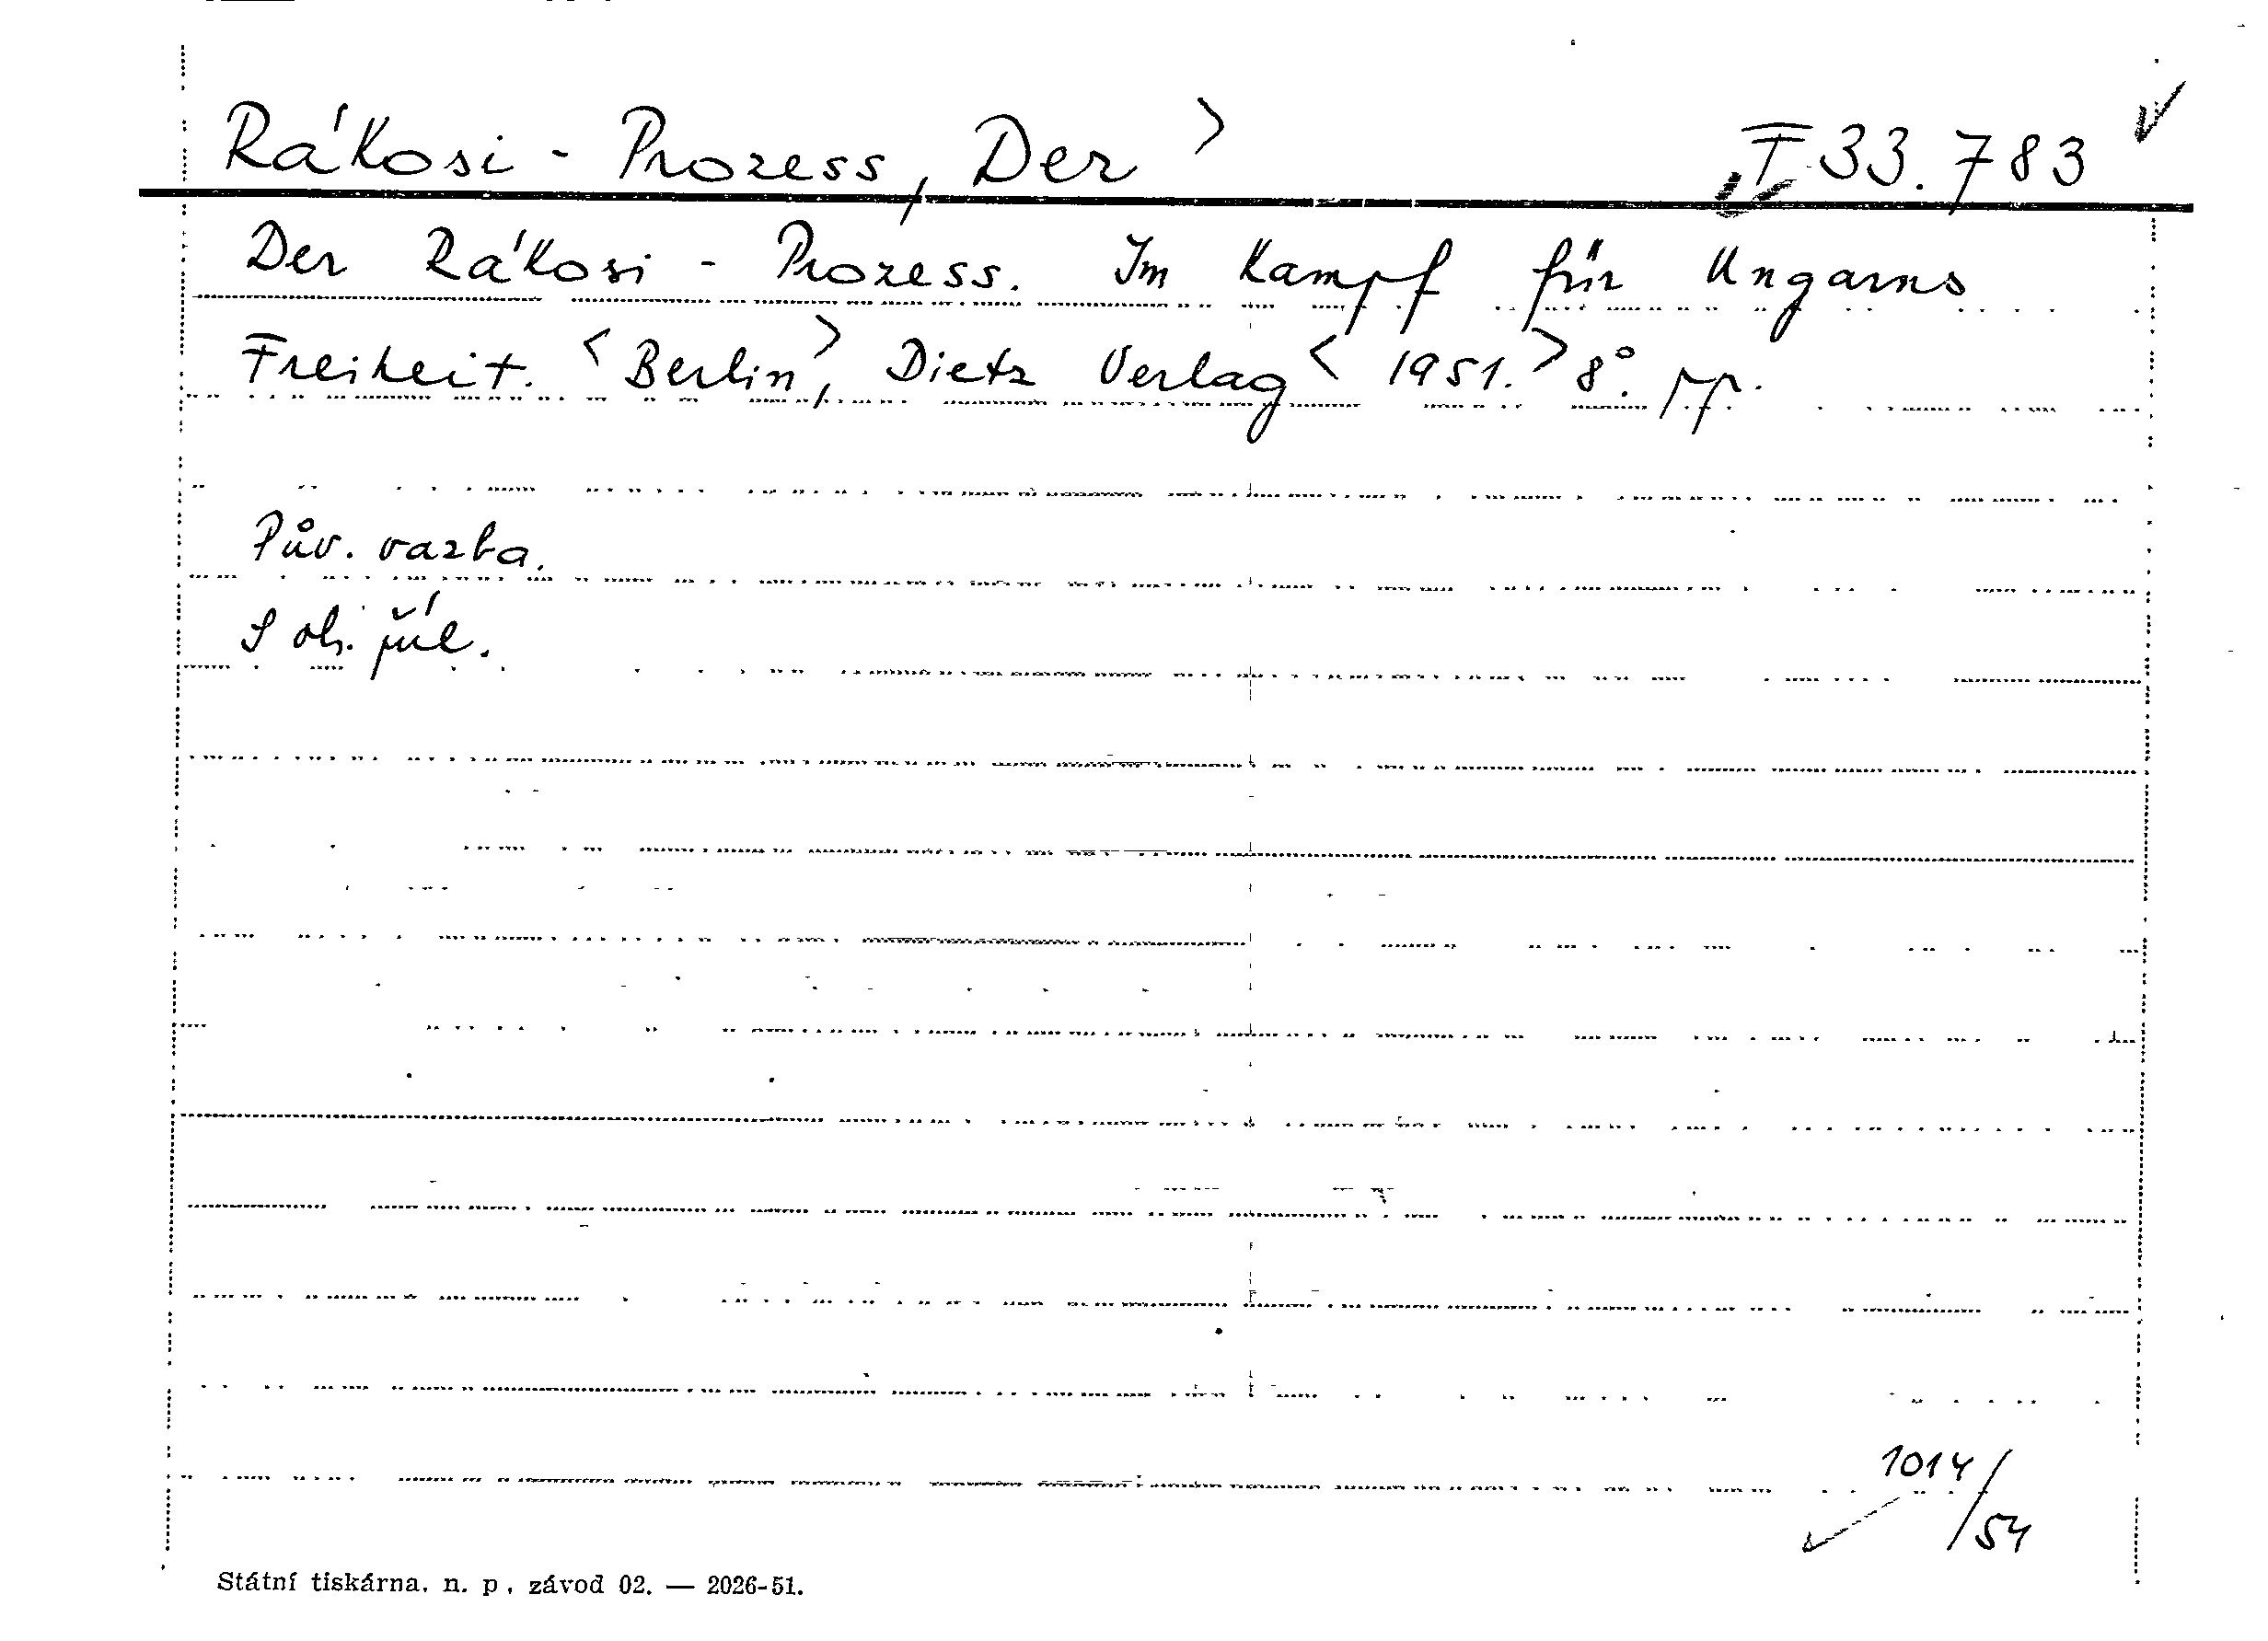 Rákosi - Prozess, Der > F 33.783
Der Rákosi - Prozess. Im Kampf für Ungarns
Freiheit. <Berlin>, Dietz Verlag <1951.> 8°. pp.
Pův. vazba.
S ob. příl.
1014/54
Státní tiskárna, n. p., závod 02. — 2026-51.